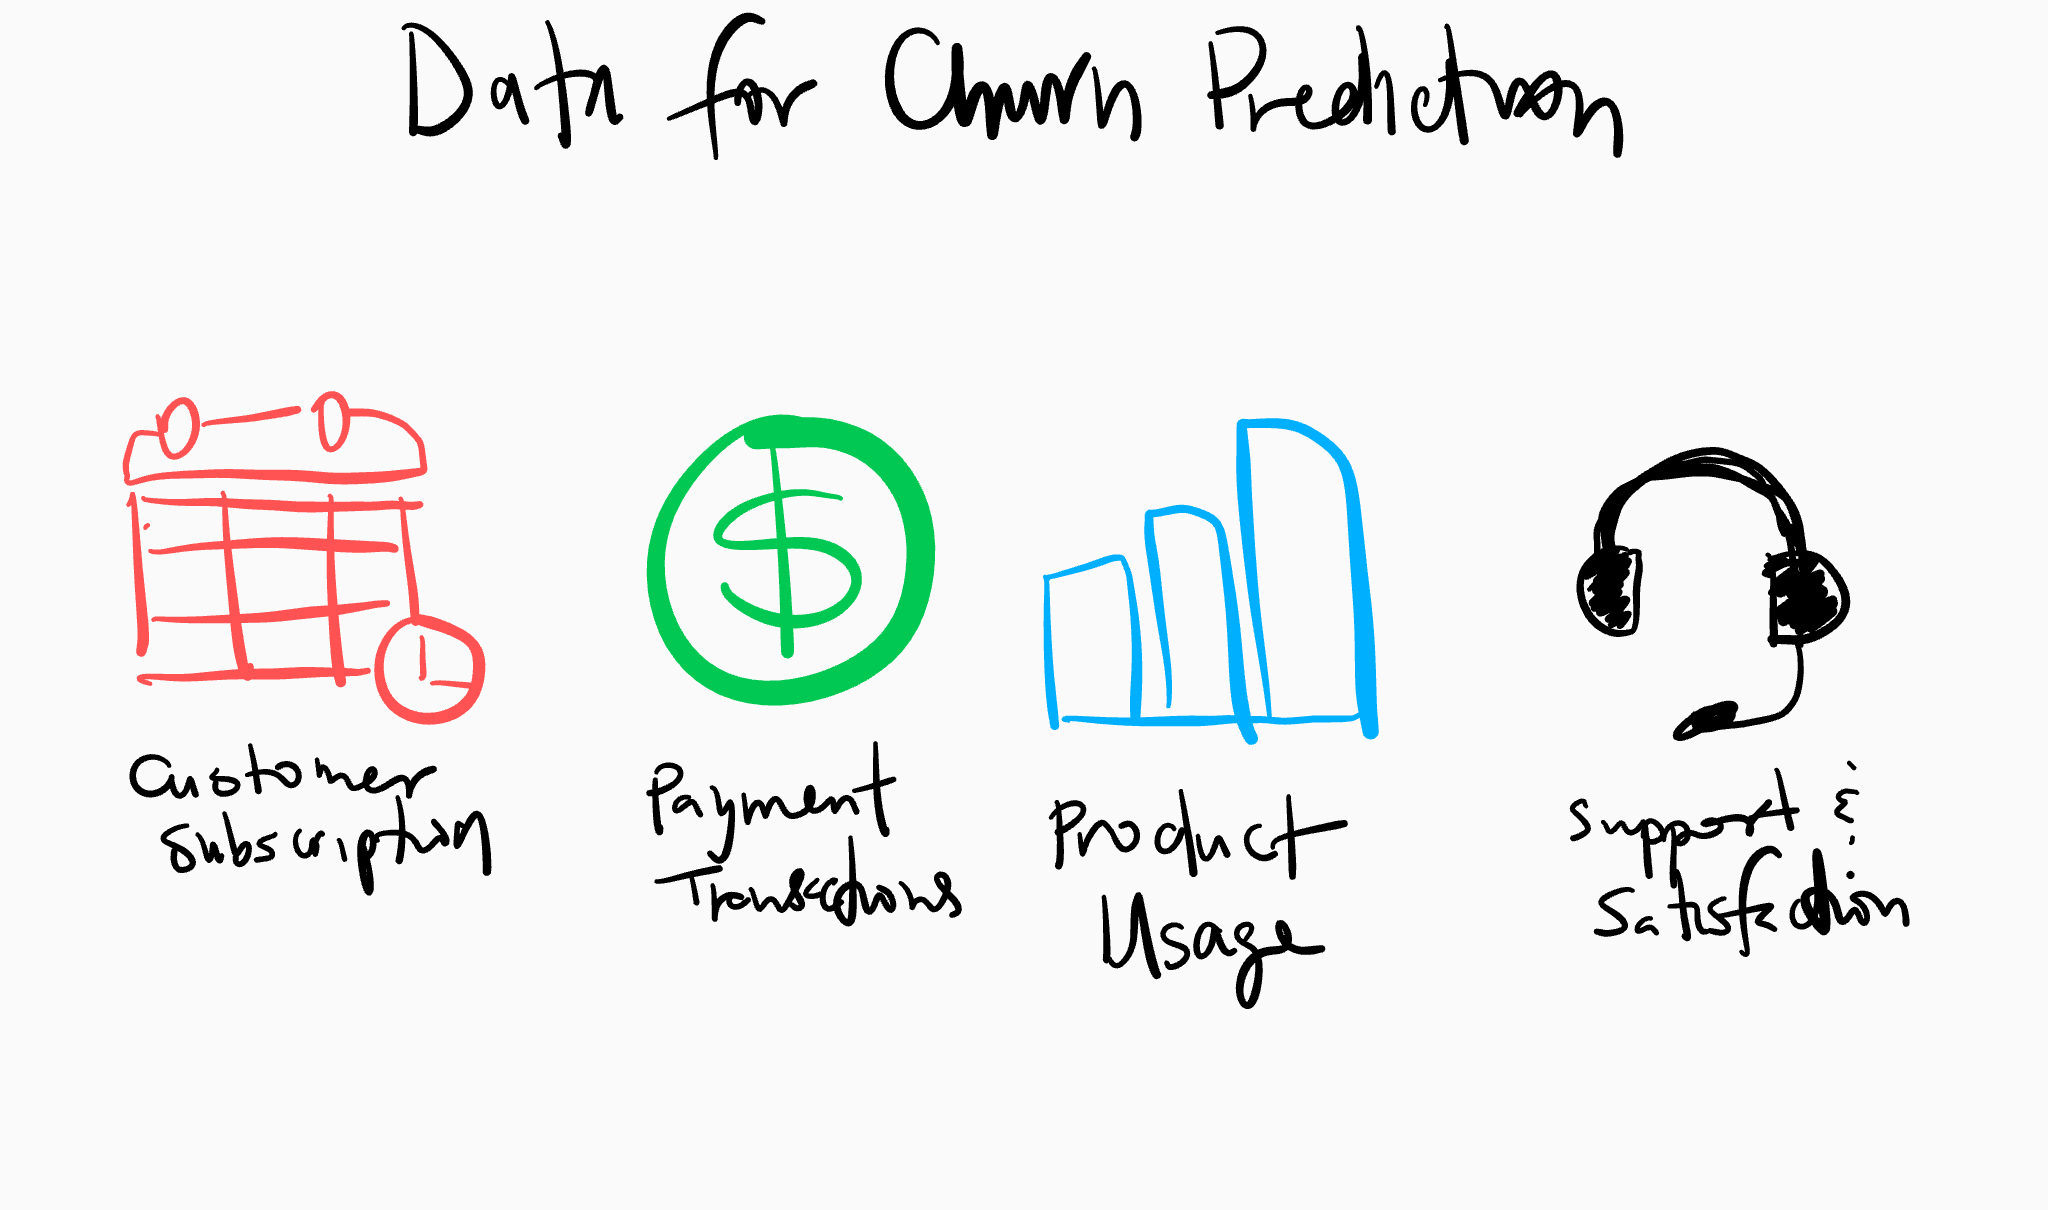 Data for Churn Prediction
Customer
Subscription
Payment
Transactions
Product
Usage
Support &
Satisfaction
$